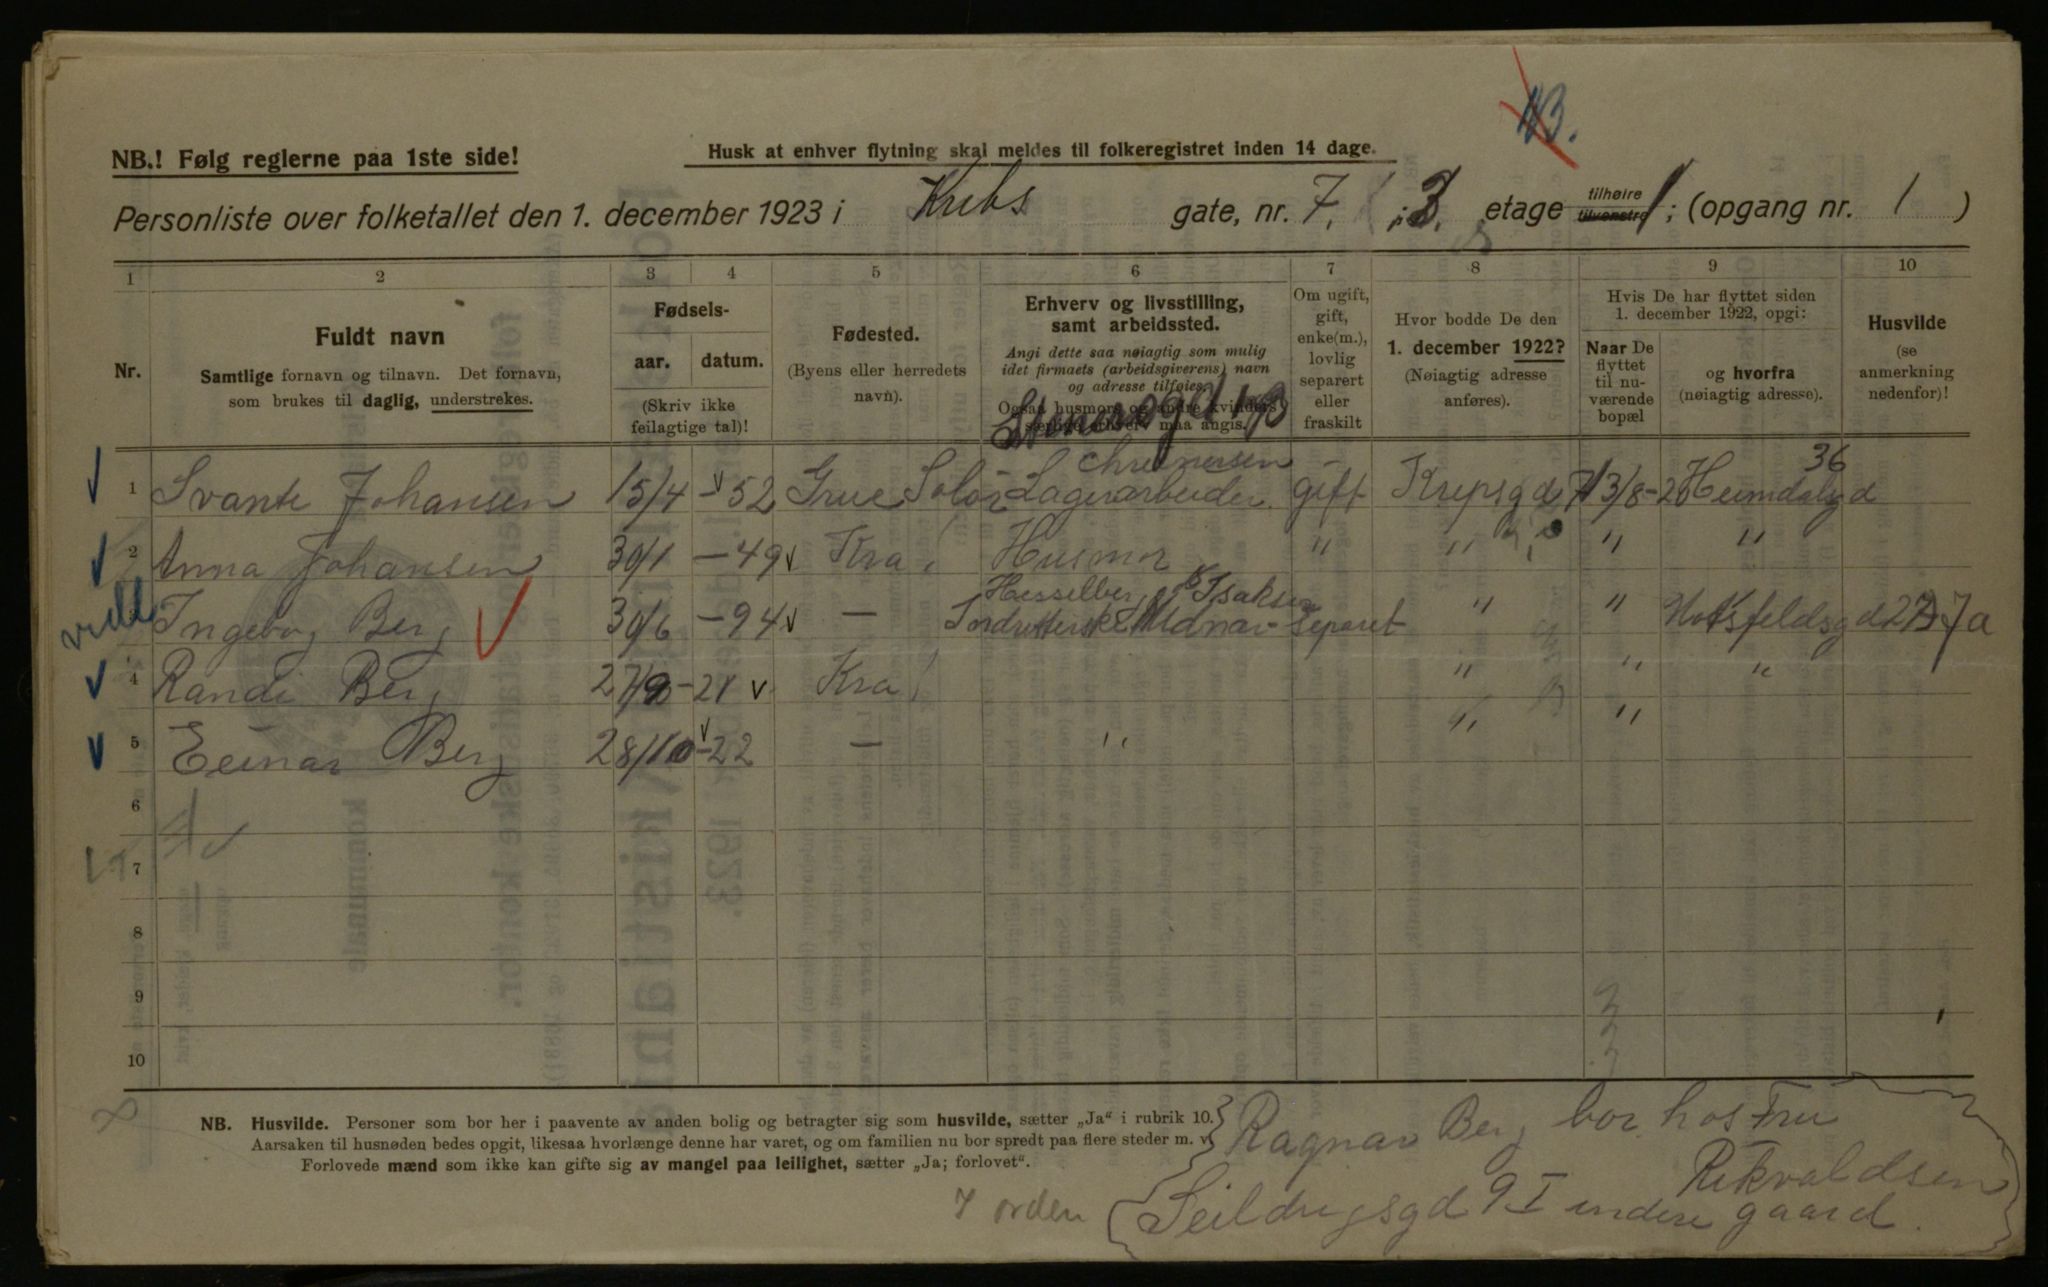 NB.! Følg reglerne paa 1ste side!
Husk at enhver flytning skal meldes til folkeregistret inden 14 dage.
Personliste over folketallet den 1. december 1923 i Krebs gate, nr. 7. ; 3. etage tilhøire tilvenstre ; (opgang nr. 1 )
1 2 3 4 5 6 7 8 9 10
Nr.
Fuldt navn
Samtlige fornavn og tilnavn. Det fornavn,
som brukes til daglig, understrekes.
Fødsels-
aar. datum.
(Skriv ikke
feilagtige tal)!
Fødested.
(Byens eller herredets
navn).
Erhverv og livsstilling,
samt arbeidssted.
Angi dette saa nøiagtig som mulig
idet firmaets (arbeidsgiverens) navn
og adresse tilføies.
Ogsaa husmors og andre kvinders
særlige erhverv maa angis.
Om ugift,
gift,
enke(m.),
lovlig
separert
eller
fraskilt
Hvor bodde De den
1. december 1922?
(Nøiagtig adresse
anføres).
Hvis De har flyttet siden
1. december 1922, opgi:
Naar De
flyttet
til nu-
værende
bopæl
og hvorfra
(nøiagtig adresse).
Husvilde
(se
anmerkning
nedenfor)!
1 Svante Johansen 15/4 -52 Grue Solør Lagerarbeider gift Krepsgd 7 13/8-20 Heimdalsgd 36
2 Anna Johansen 30/1 -49 Kra Husmor " " " "
Hesselberg & Isaksen
3 Ingeborg Berg 30/6 -94 — Separet " "
4 Randi Berg 27/9 -21 Kra " " "
5 Einar Berg 28/10 -22 — " " "
6
7
8
9
10
NB. Husvilde. Personer som bor her i paavente av anden bolig og betragter sig som husvilde, sætter „Ja“ i rubrik 10.
Aarsaken til husnøden bedes opgit, likesaa hvorlænge denne har varet, og om familien nu bor spredt paa flere steder m. v.
Forlovede mænd som ikke kan gifte sig av mangel paa leilighet, sætter „Ja; forlovet“.
Ragnar Berg bor hos Fru
Rikvaldsen
Seildugsgd 9 I indre gaard.
orden